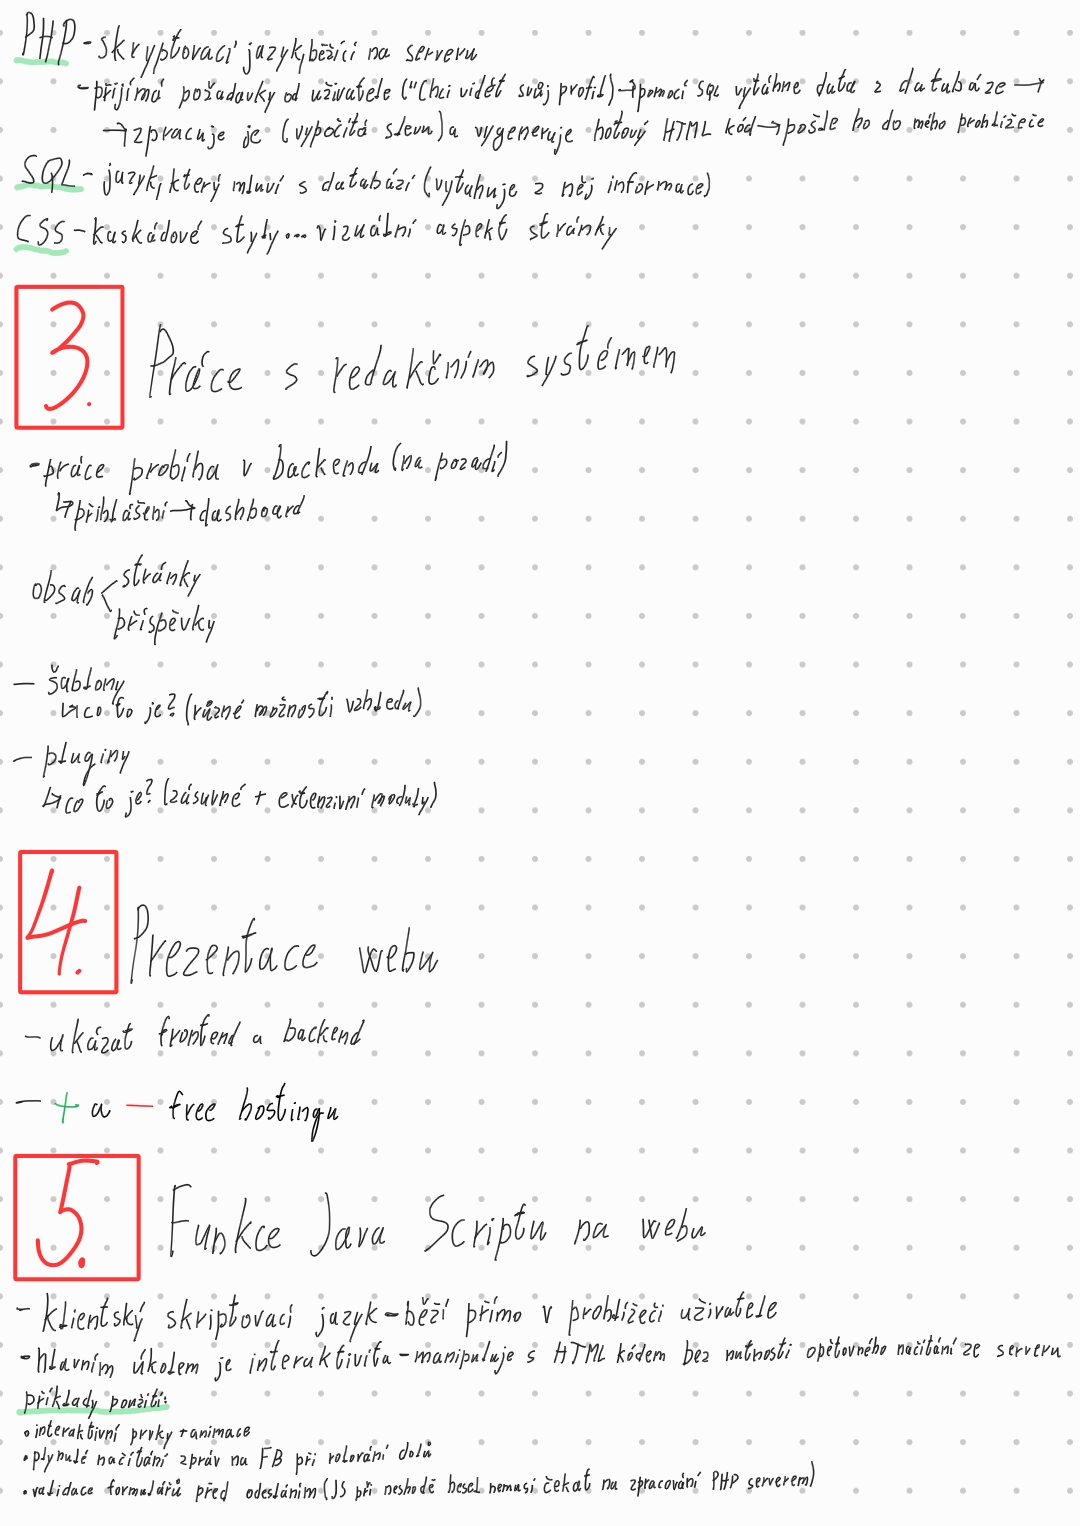 PHP - skryptovací jazyk, běžící na serveru
- přijímá požadavky od uživatele ("Chci vidět svůj profil) → pomocí SQL vytáhne data z databáze →
→ zpracuje je (vypočítá slevu) a vygeneruje hotový HTML kód → pošle ho do mého prohlížeče
SQL - jazyk, který mluví s databází (vytahuje z něj informace)
CSS - kaskádové styly... vizuální aspekt stránky
3. Práce s redakčním systémem
- práce probíha v backendu (na pozadí)
↳ přihlášení → dashboard
stránky
obsah <
příspěvky
- šablony
↳ co to je? (různé možnosti vzhledu)
- pluginy
↳ co to je? (zásuvné + extenzivní moduly)
4. Prezentace webu
- ukázat frontend a backend
- + a - free hostingu
5. Funkce Java Scriptu na webu
- klientský skriptovací jazyk - běží přímo v prohlížeči uživatele
- hlavním úkolem je interaktivita - manipuluje s HTML kódem bez nutnosti opětovného načítání ze serveru
příklady použití:
• interaktivní prvky + animace
• plynulé načítání zpráv na FB při rolování dolů
• validace formulářů před odesláním (JS při neshodě hesel nemusí čekat na zpracování PHP serverem)